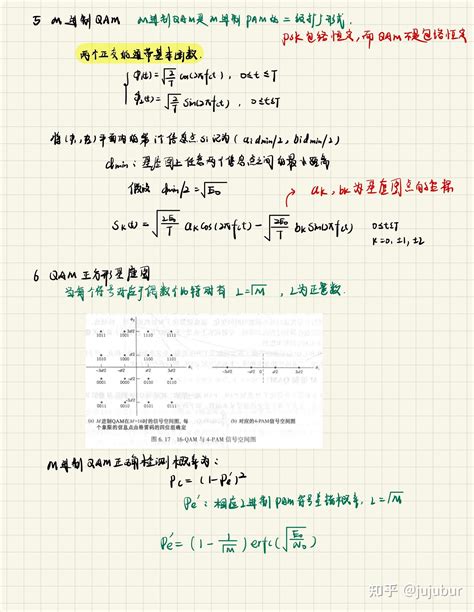 5 M进制QAM M进制QAM是M进制PAM的二维扩展形式.
PSK包络恒定,而QAM不是包络恒定
两个正交的通带基本函数.
φ₁(t)=√(2/T) cos(2πfct), 0≤t≤T
φ₂(t)=√(2/T) sin(2πfct), 0≤t≤T
平面内的第i个信号点Si记为(aidmin/2, bidmin/2)
dmin:星座图上任意两个信号点之间的最小距离
假设 dmin/2=√E₀
ak, bk为星座图点的坐标
Sk(t)=√(2E₀/T) ak cos(2πfct)-√(2E₀/T) bk sin(2πfct) 0≤t≤T
k=0, ±1, ±2
6 QAM正方形星座图
当每个符号对应于偶数个比特时有 L=√M, L为正整数.
1011 1001 1110 1111
1010 1000 1100 1101
0001 0000 0100 0110
0011 0010 0101 0111
(a) M进制QAM在M=16时的信号空间图,每
个象限的信息点由格雷码的四位组确定
(b) 对应的4-PAM信号空间图
图 6.17 16-QAM 与 4-PAM 信号空间图
M进制QAM正确检测概率为:
Pc=(1-Pe')²
Pe':相应L进制PAM符号差错概率, L=√M
Pe'=(1-1/√M) erfc(√(E₀/N₀))
知乎 @jujubur